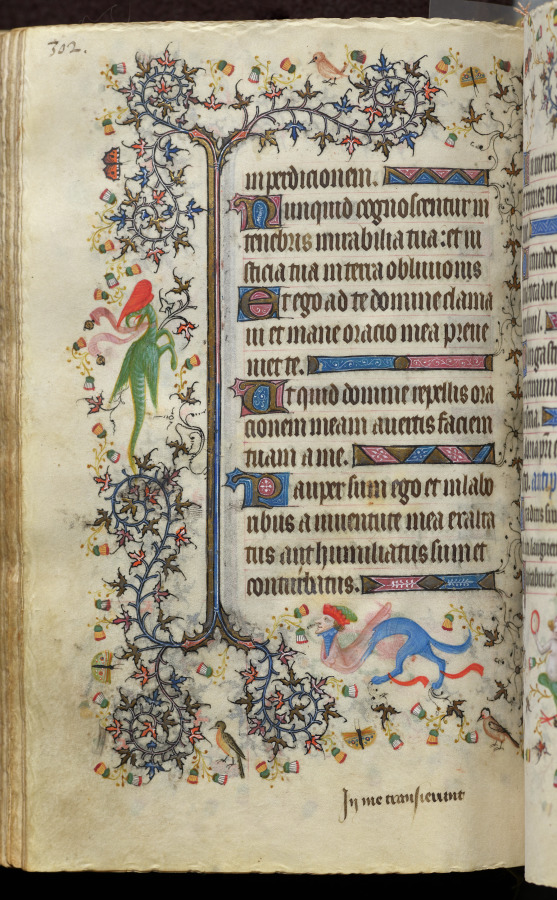 302.
in perdicionem.
Nunquid cognoscentur in
tenebris mirabilia tua: et iu
sticia tua in terra obliuionis
Et ego ad te domine clama
ui et mane oracio mea preue
niet te.
Ut quid domine repellis ora
cionem meam auertis faciem
tuam a me.
Pauper sum ego et in labo
ribus a iuuentute mea exalta
tus aut humiliatus sum et
conturbatus.
In me transierunt